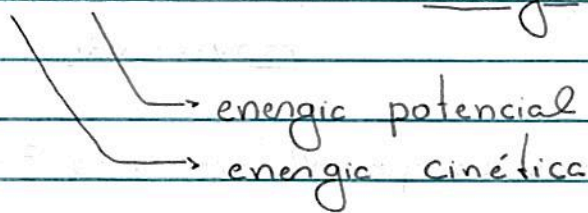 energia potencial
energia cinética